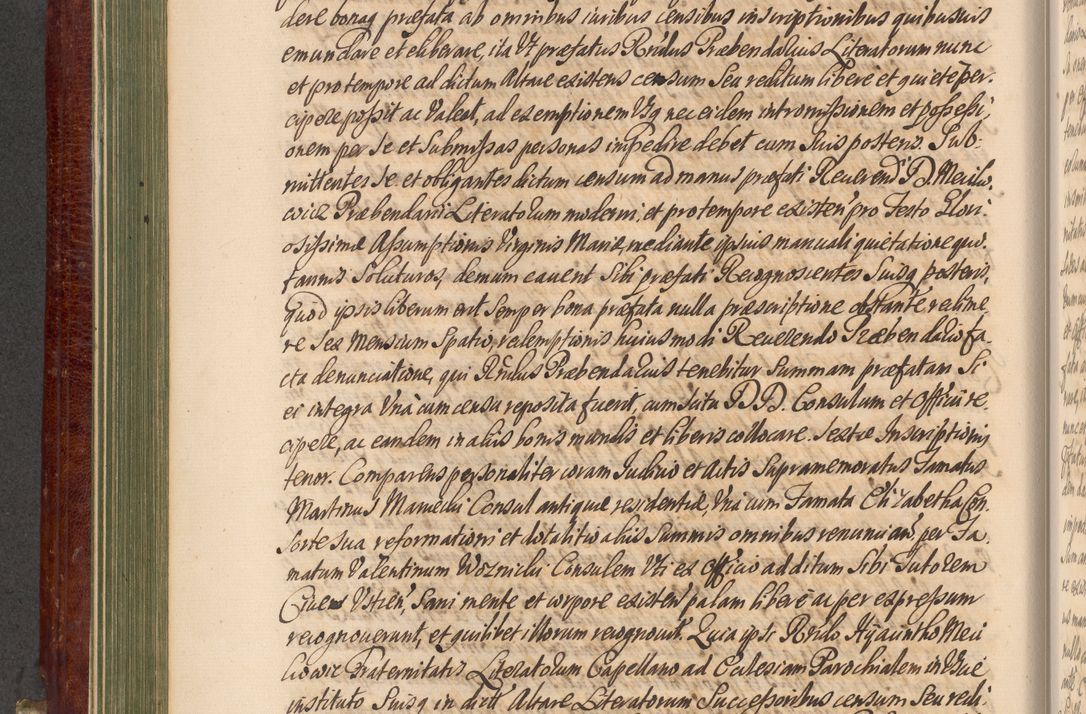 dere bonaq præfata ab omnibus iuribus censibus inscriptionibus quibusuis
emundare et eliberare, ita Vt præfatus Rńdus Præbendarius Literatorum nunc
et pro tempore ad dictum Altare existens censum Seu reditum libere et quietè per:
cipere possit ac Valeat, ad exemptionem Vsq nec eidem intromissionem et possessi,
onem per Se et Submissas personas impedire debet cum suis posteris. Sub-
mittentes Se et obligantes dictum censum ad manus præfati Reuerend D Meicho,
wicz Præbendarii Literatorum moderni, et pro tempore existen pro Festo Glori-
osissimæ Assumptionis Virginis Mariæ mediante ipsius manuali quietatione quo.
tannis Soluturos, demum cauent Sibi præfati Recognoscentes Suisq posteris,
quod ipsis liberum erit Semper bona præfata nulla præscriptione obstante redime,
re Sex Mensium Spatio, redemptionis huiusmodi Reuerendo Præbendario fa,
cta denunciatione, qui Rńdus Præbendarius tenebitur Summam præfatam Si
ei integra Vna cum censu reposita fuerit, cum Scitu D.D. Consulum et Officii re,
cipere, ac eandem in aliis bonis mundis et liberis collocare. Sextæ Inscriptionis
tenor. Comparens personaliter coram Iudicio et Actis Supramemoratus Famatus
Martinus Mamecki Consul antiquæ residentiæ, Vna cum Famata Elizabetha Con,
sorte sua reformationi et dotalitio aliis Summis omnibus renuncian per Fa,
matum Valentinum Woznicki Consulem Vti ex Officio additum Sibi Tutorem
Ciuem Vstien, Sani mente et corpore existen palam libere ac per expressum
recognouerunt, et quilibet illorum recognouit. Quia ipsi Rńdo Hyacintho Mei
chowic Fraternitatis Literatorum Capellano ad Ecclesiam Parochialem in
instituto Suisq in dict Altare Literatorum Successoribus censum Seu redi-